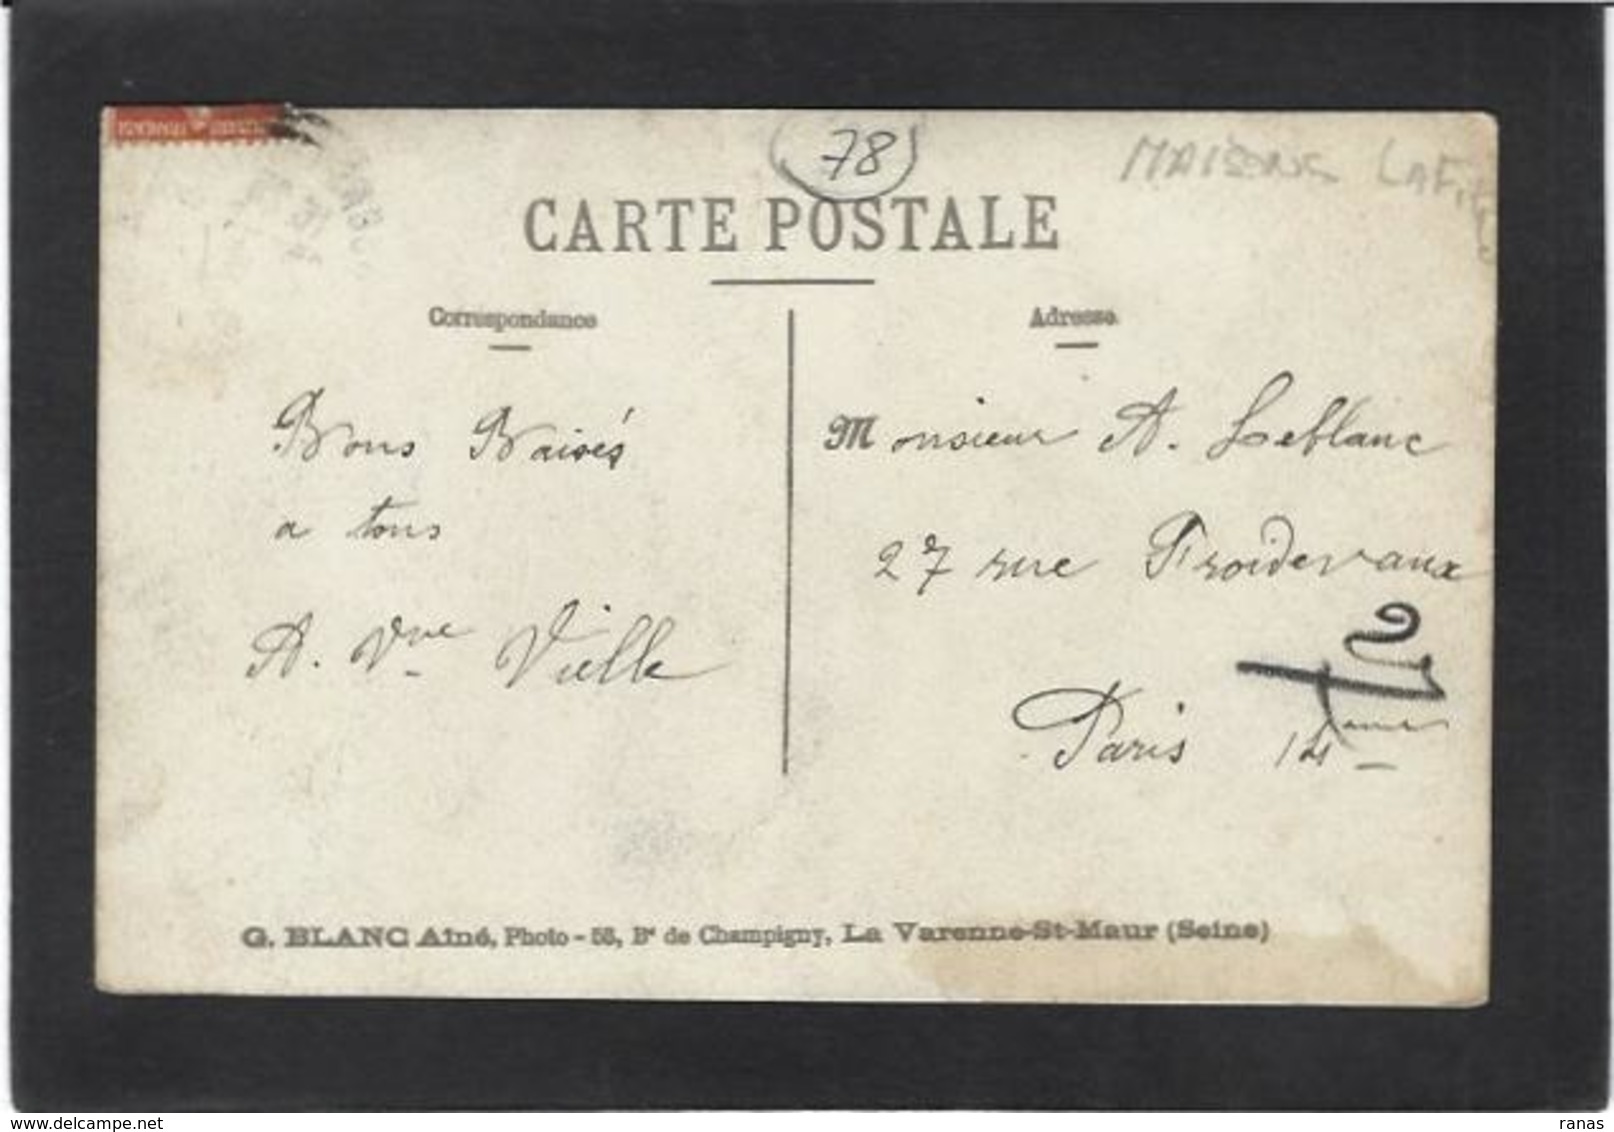 78
MAISONS LAFI
CARTE POSTALE
Correspondance
Adresse
Bons Baisés
a tous
A. Vve Vielle
Monsieur A. Leblanc
27 rue Froidevaux
27
Paris 14ème
G. BLANC Aîné, Photo - 58, Bd de Champigny, La Varenne-St-Maur (Seine)
delcampe.net
ranas